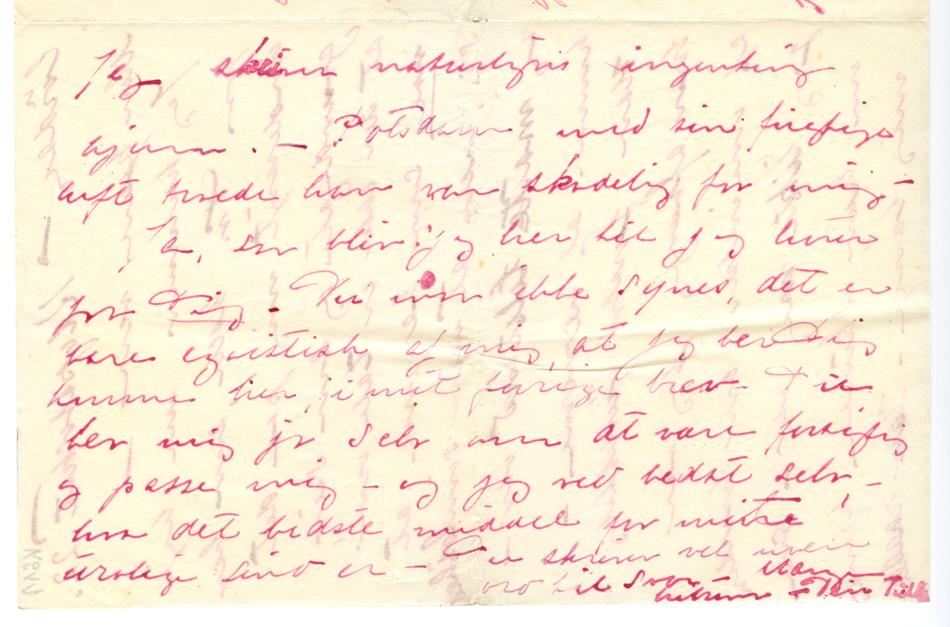 Jeg skriver naturligvis ingenting
hjem. — Potsdam med sin fugtige
luft troede han var skadelig for mig —
Ja, saa bliver jeg her til jeg hører
fra Dig. — Du maa ikke synes, det er
bare egoistisk af mig, at jeg ber Dig
komme her, i mit forrige brev — Du
ber mig jo selv om at være fornuftig
og passe mig — og jeg ved bedst selv, —
hva det bedste middel for mitt
urolige sind er — Du skriver vel
ord til Svar
Din